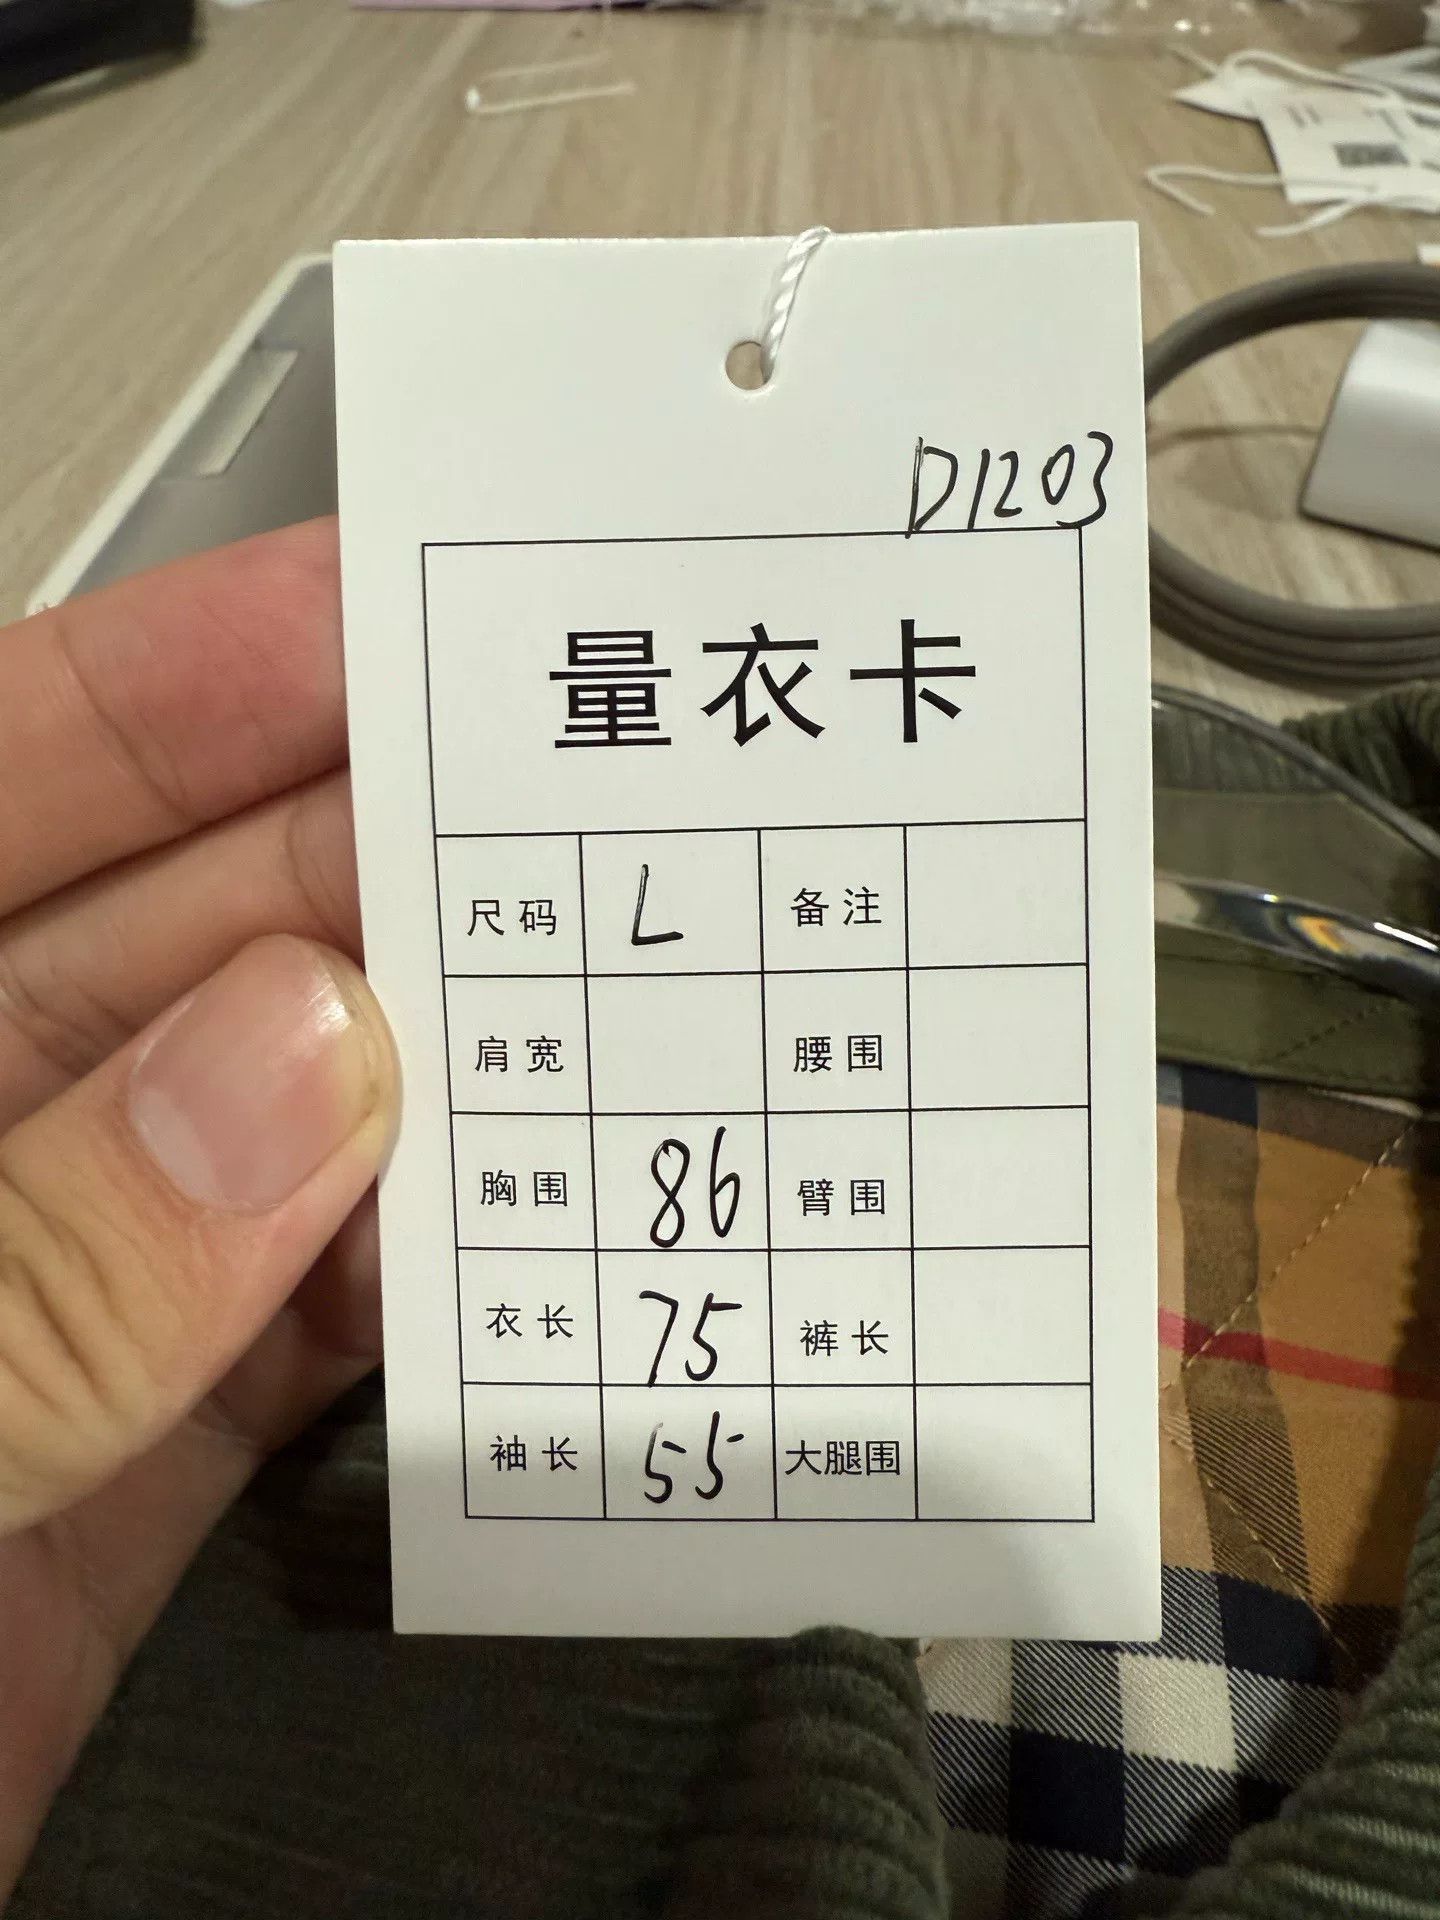 D1203
量衣卡
尺码 L 备注
肩宽 腰围
胸围 86 臂围
衣长 75 裤长
袖长 55 大腿围